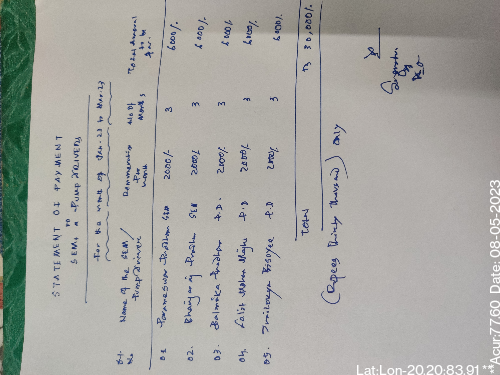 STATEMENT OF PAYMENT
TO
SEM & PUMP DRIVERS
For the month of Jan-23 to Mar-23
Sl. No Name of the SEM/ Pump Driver Per month No of months Total Amount to be
01 Parameswar Pradhan SEM 2000/- 3 6000/-
02. Pradhan SEM 2000/- 3 6000/-
03. Balmika Pradhan P.D. 2000/- 3 6000/-
04. Lalit Mohan Majhi P.D 2000/- 3 6000/-
05. Bisoyee P.D 2000/- 3 6000/-
Total 30,000/-
(Rupees Thirty Thousand) only
Lat:Lon-20.20:83.91**
Acur:7760 Date: 08-05-2023